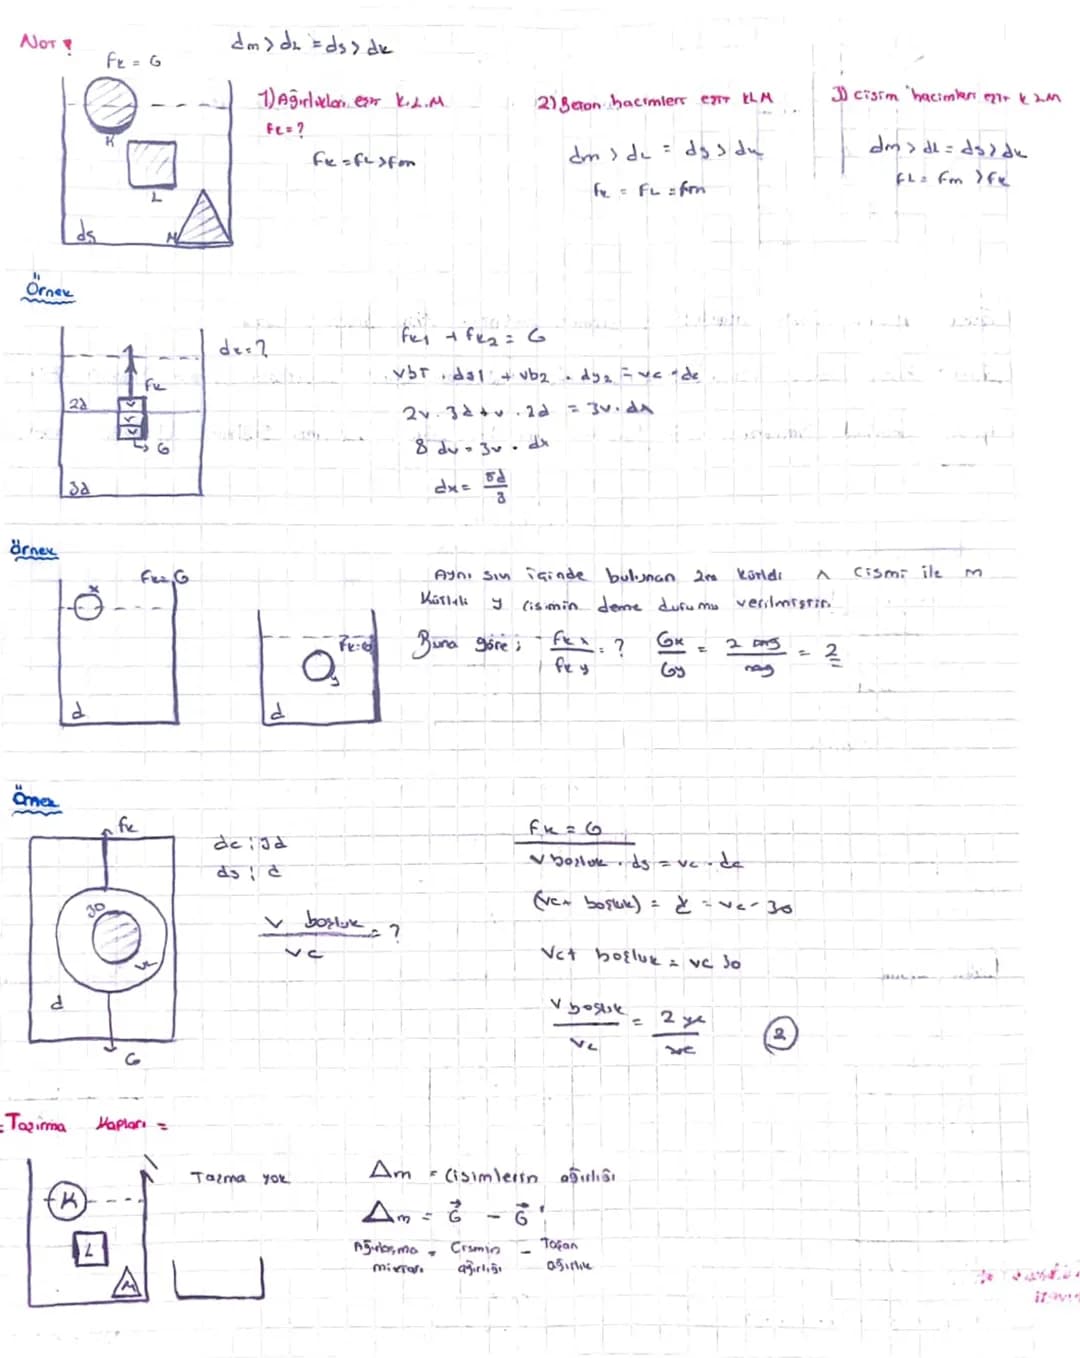 NOT !
dm > dL = ds > dk
Fk = G
K
L
M
ds
1) Ağırlıkları eşit K.L.M
Fk = ?
Fk = FL > Fm
2) Batan hacimleri eşit KLM
dm > dL = ds > dk
Fk = FL = Fm
3) Cisim hacimleri eşit KLM
dm > dL = ds > dk
FL = Fm > Fk
Örnek
dx = ?
Fk
2d
v
v
v
G
3d
Fk1 + Fk2 = G
vb1 . ds1 + vb2 . ds2 = vc . dc
2v . 3d + v . 2d = 3v . dx
8 dv = 3v . dx
dx = 8d / 3
Örnek
Fk = G
x
d
Fk = G
y
d
Aynı sıvı içinde bulunan 2m kütleli x cismi ile m
kütleli y cismin deme durumu verilmiştir.
Buna göre ; Fk x / Fk y = ? Gx / Gy = 2 mg / mg = 2
Örnek
Fk
3d
vc
d
G
dc : 3d
ds : d
V boşluk / vc = ?
Fk = G
V boşluk . ds = vc . dc
(vc + boşluk) = d = vc - 3d
Vc + boşluk = vc 3d
V boşluk / vc = 2 vc / vc
2
Taşırma Kapları =
K
L
M
Taşma yok
Δm = Cisimlerin ağırlığı
Δm = G - G'
Ağırlaşma miktarı = Cismin ağırlığı - Taşan ağırlık